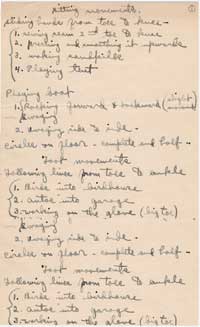 sitting movements. 1
sliding hands from toe to knee -
1. sewing seam 2nd toe to knee
2. pressing and smoothing it upwards
3. making sandpiles
4. Playing tent
Playing boat
1. Rocking forward & backward (slight
2. swaying side to side -
Circles on floor - complete and half -
Foot movements
Following lines from toe to ankle
1. Birds into birdhouse
2. autos into garage
3. working on the glove (big toe)
swaying
2. swaying side to side -
Circles on floor - complete and half -
Foot movements
Following lines from toe to ankle
1. Birds into birdhouse
2. autos into garage
3. working on the glove (big toe)